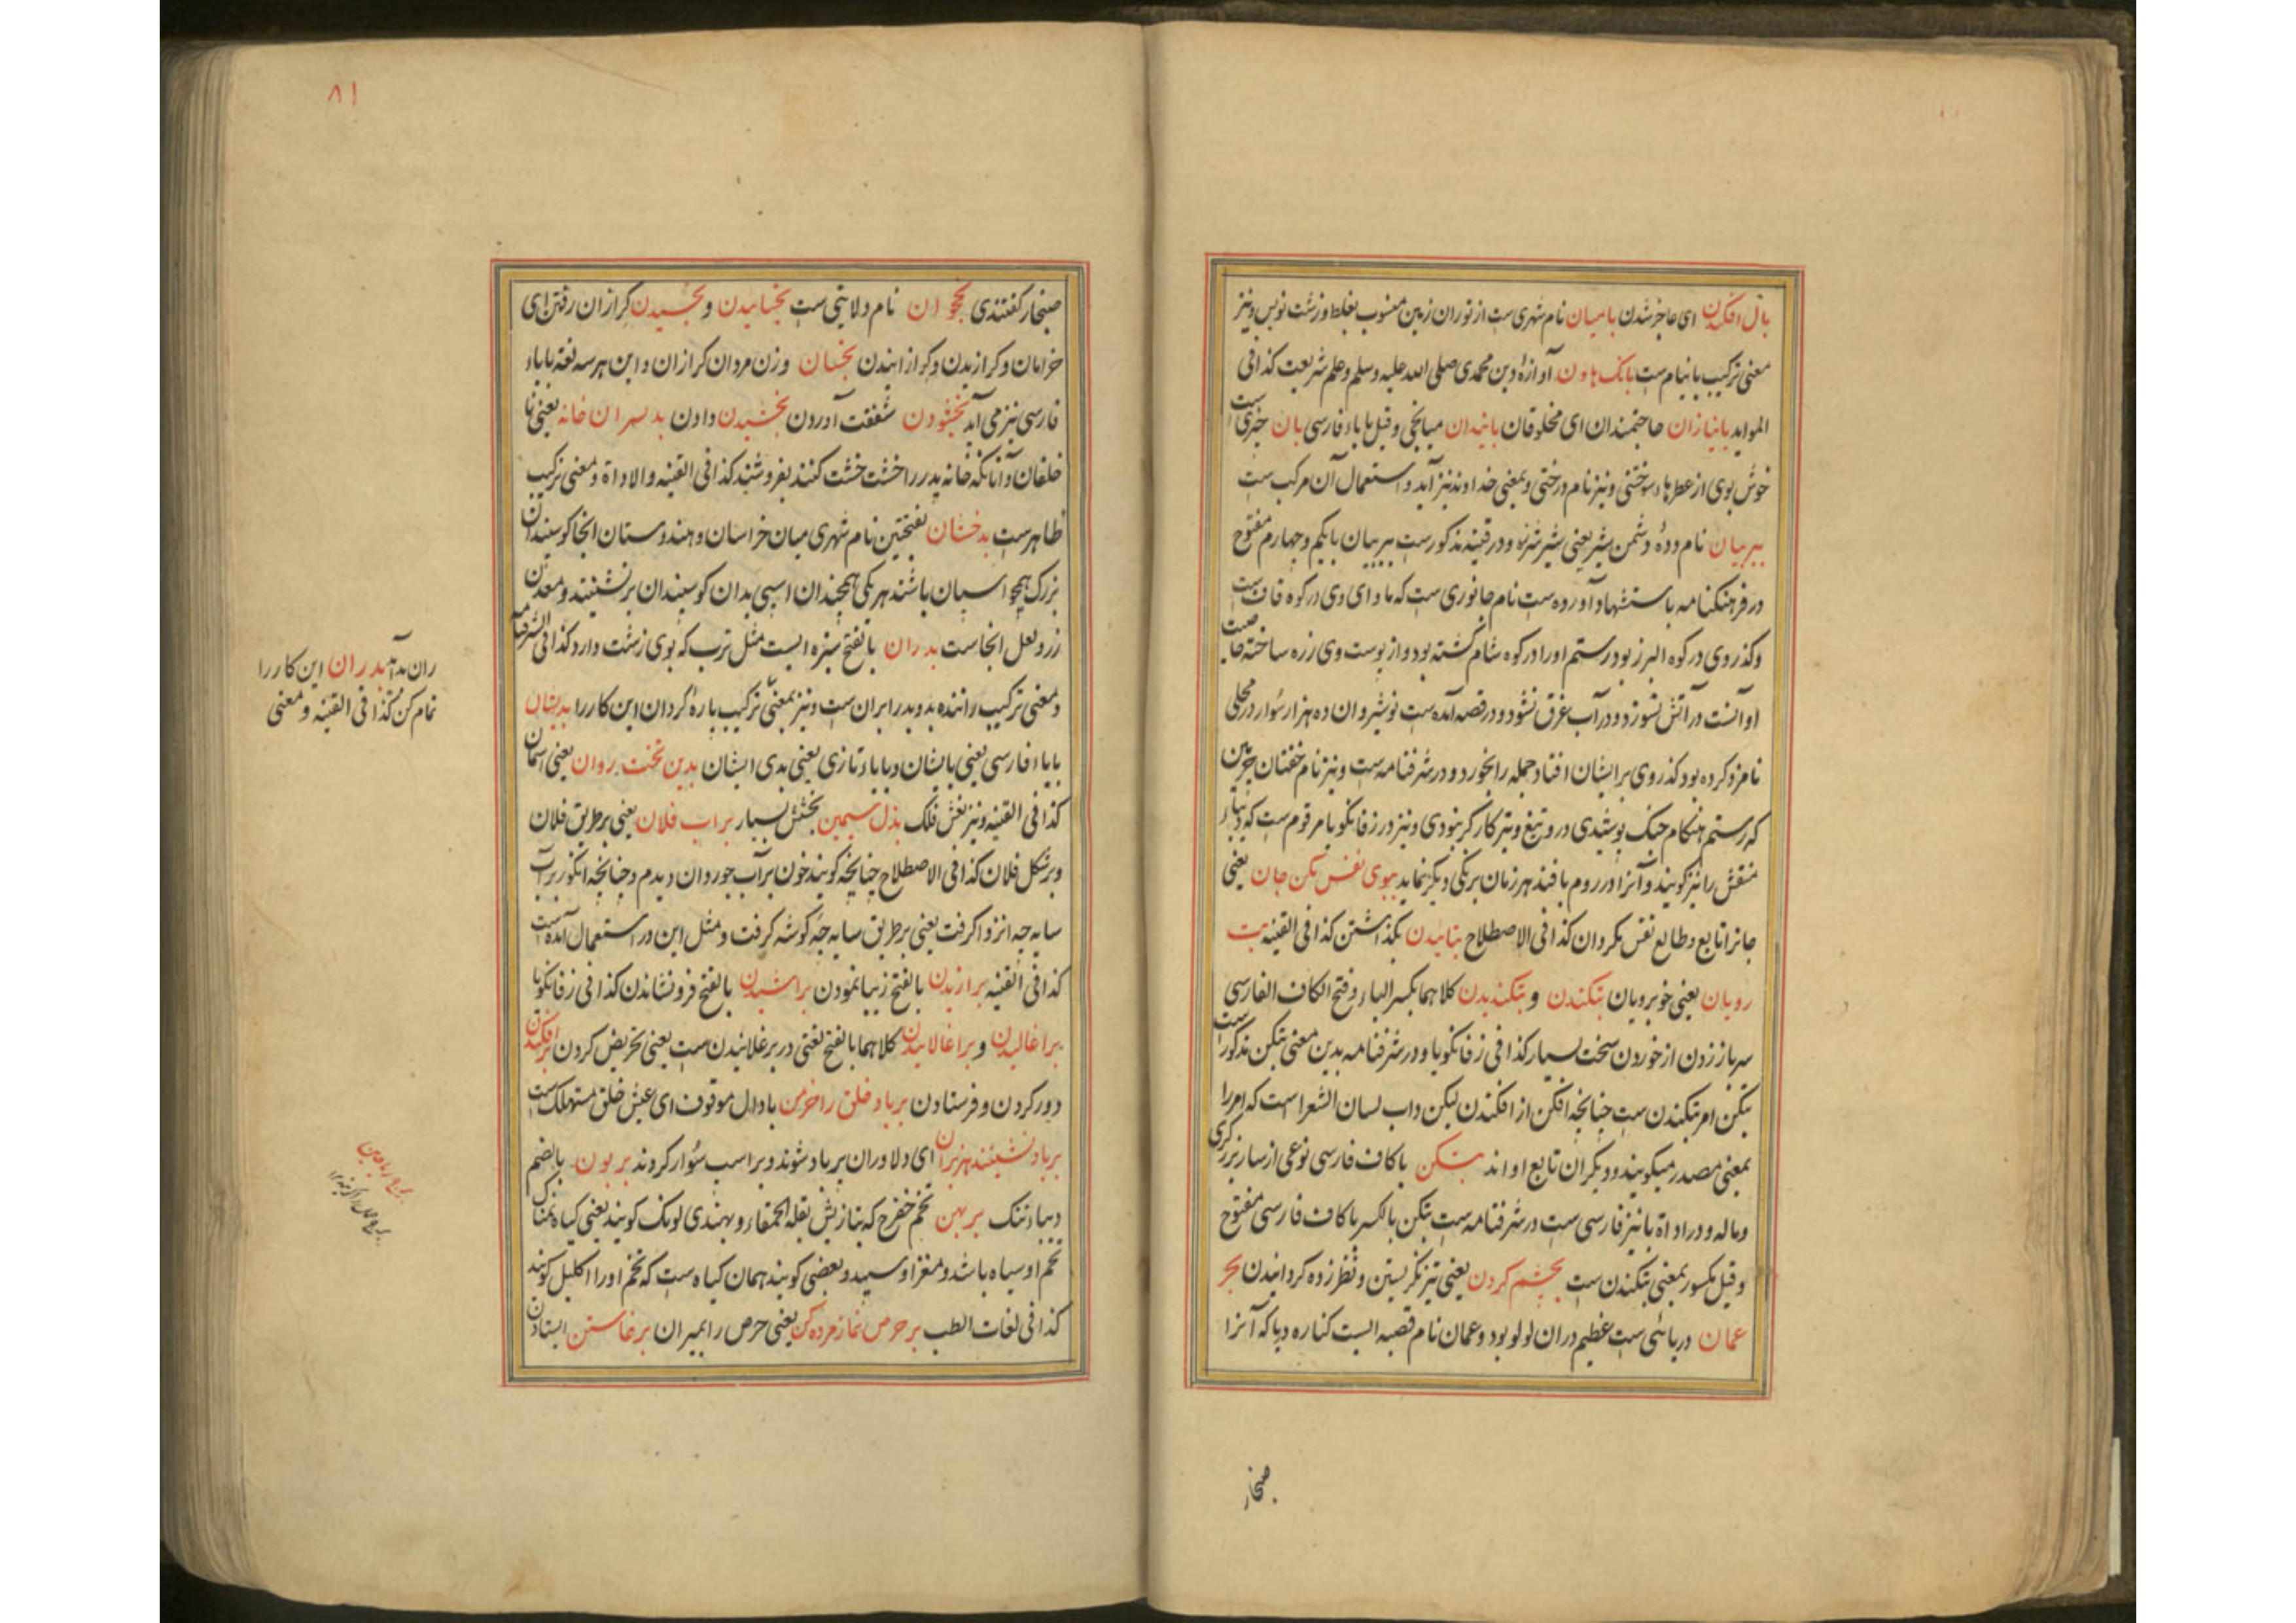 بال افکندن ای عاجز شدن بامیان نام شهری ست از توران زمین منسوب بغلط و زشت نویس و نیز
معنی ترکیب بانیام ست بانک هاون آوازهٔ دین محمدی صلی الله علیه وسلم و علم شریعت کذا فی
الموابد بانیازان حاجتمندان ای مخلوقان بایندان میانجی و قیل با باء فارسی بان چیزی است
خوش بوی از عطرها و سوختنی و نیز نام درختی و بمعنی خداوند نیز آید و استعمال آن مرکب ست
ببر بیان نام دده دشمن شیر یعنی شیر شرزه و در قنیه مذکورست ببر بیان بایکم و چهارم مفتوح
در فرهنکنامه با ستشهاد آورده ست نام جانوری ست که ماوای وی در کوه قاف ست
و کذر وی در کوه البرز بود رستم او را در کوه شام کشته بود و از پوست وی زره ساخته خاصیت
او آنست در آتش نسوزد و در آب غرق نشود و در قصه آمده ست نوشیروان ده هزار سوار در محلی
نامزد کرده بود کذر وی بر ایشان افتاد جمله را بخورد و در شرفنامه ست و نیز نام خفتان چرمین
که رستم هنکام جنک پوشیدی درو تیغ و تیر کارکر نبودی و نیز در زفانکویا مرقوم ست که دیباء
منقش را نیز کویند و آنرا در روم بافند هر زمان برنکی دیکر نماید ببوی نفس مکن جان یعنی
جانرا تابع و طالع نفس مکردان کذا فی الاصطلاح بتائیدن بکذاشتن کذا فی القنیه بت
رویان یعنی خوبرویان بتکندن و بتکندیدن کلاهما بکسر الباء و فتح الکاف الفارسی
سر باز زدن از خوردن سخت بسیار کذا فی زفانکویا و در شرفنامه بدین معنی بتکن مذکور است
بتکن امر بتکندن ست چنانچه افکن از افکندن لیکن داب لسان الشعرا است که امر را
بمعنی مصدر میکویند و دیکران تابع او اند بتکن با کاف فارسی نوعی از ساز برزکری
و ماله و در اداة با نیز فارسی ست در شرفنامه ست بتکن بالکسر با کاف فارسی مفتوح
و قیل مکسور بمعنی بتکندن ست بچشم کردن یعنی تیز نکریستن و نظر زده کردانیدن بحر
عمان دریائی ست عظیم در ان لولو بود و عمان نام قصبه ایست کناره دریا که آنرا
صنحار
۸۱
صنحار کفتندی بخجوان نام ولایتی ست بخسانیدن و بخسیدن کرازان رفتن ای
خرامان و کرازیدن و کرازانیدن بخسان وزن مردان کرازان و این هر سه لغة با باء
فارسی نیز می آید بخشودن شفقت آوردن بخشیدن دادن بد پسران خانه یعنی نا
خلفان و آنانکه خانه پدر را خشت خشت کنند بفروشند کذا فی القنیه والاداة و معنی ترکیب
ظاهرست بدخشان بفتحتین نام شهری میان خراسان و هندوستان انجا کوسپندان
بزرک همچو اسپان باشند هر یکی همچندان اسپی بدان کوسپندان بر نشینند و معدن
زر و لعل انجاست بدران بالفتح سبزه ایست مثل ترب که بوی زشت دارد کذا فی الشرفنامه
و معنی ترکیب راننده بد و بدر ایران ست و نیز بمعنی ترکیب باره کردان این کار را بدیشان
با باء فارسی یعنی بایشان و با باء تازی یعنی بدی ایشان بدین تخت روان یعنی آسمان
کذا فی القنیه و نیز نعش فلک بذل سیمین بخشش بسیار براب فلان یعنی بر طریق فلان
و بر شکل فلان کذا فی الاصطلاح چنانچه کویند خون برآب جو روان دیدم و چنانچه انکور برآب
سایه چه انزوا کرفت یعنی بر طریق سایه چه کوشه کرفت و مثل این در استعمال آمده است
کذا فی القنیه برازیدن بالفتح زیبا نمودن براشیدن بالفتح فرو نشاندن کذا فی زفانکویا
براغالیدن و براغالانیدن کلاهما بالفتح لغتی در برغلانیدن ست یعنی تحریض کردن برافکندن
دور کردن و فرستادن برباد خلق راخرمن با دال موقوف ای عیش خلق مستهلک ست
برباد نشینند هزبران ای دلاوران بر باد شوند و بر اسب سوار کردند بربون بالضم
دیباء تنک بربهن تخم خفرج که بتازیش بقلة الحمقاء و بهندی لونک کویند یعنی کیاه نمناک
تخم او سیاه باشد و مغز او سپید و بعضی کویند همان کیاه ست که تخم او را اکلیل کویند
کذا فی لغات الطب بر حرص نماز مرده کن یعنی حرص را بمیران برخاستن ایستادن
ران بدآید بدران این کار را
تمام کن کذا فی القنیه و معنی